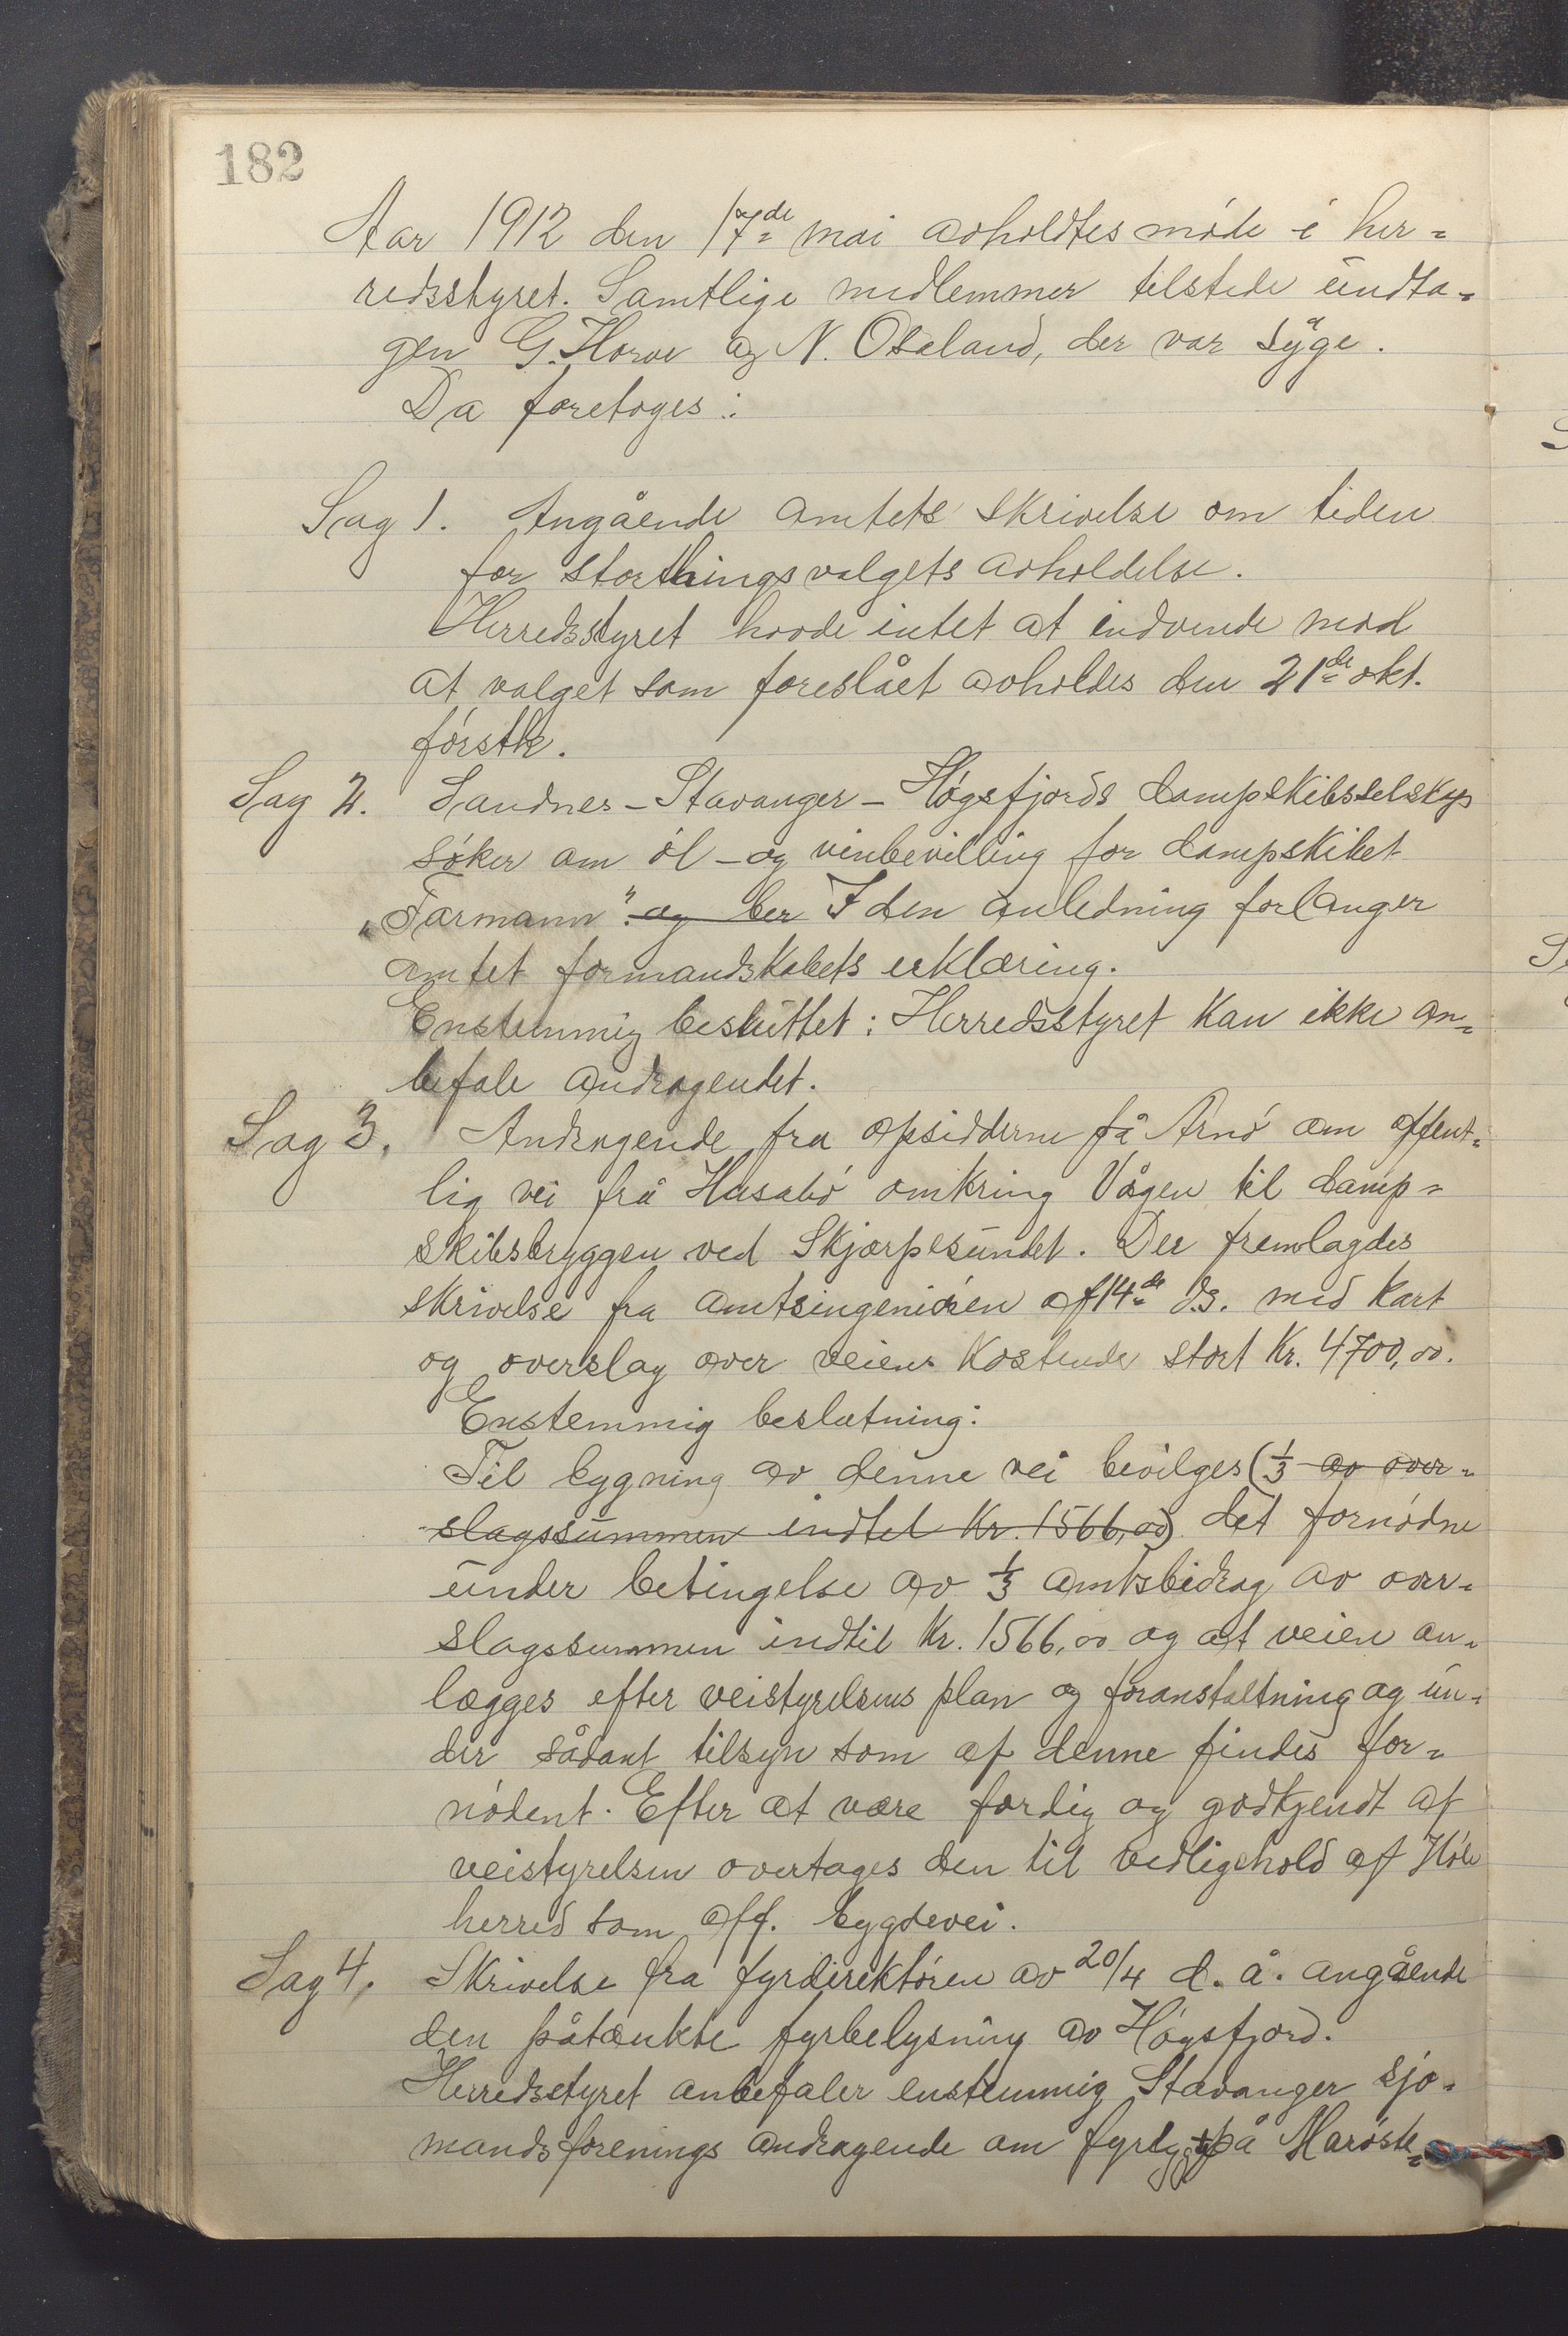 182
Aar 1912 den 17de mai avholdtes møde i her=
redsstyret. Samtlige medlemmer tilstede undta=
gen G. Horve og N. Oseland, der var syge.
Da foretoges:
Sag 1. Angående amtets skrivelse om tiden
for storthingsvalgets avholdelse.
Herredsstyret havde intet at indvende mod
at valget som foreslået avholdes den 21de okt.
førstk.
Sag 2. Sandnes-Stavanger-Høgsfjords dampskibsselskap
søker om øl- og vinbevilling for dampskibet
"Farmann". og ber I den anledning forlanger
amtet formandskabets erklæring.
Enstemmig besluttet: Herredsstyret kan ikke an=
befale andragendet.
Sag 3. Andragende fra opsidderne på Ådnø om offent=
lig vei frå Husabø omkring Vågen til damp=
skibsbryggen ved Skjærpesundet. Der fremlagdes
skrivelse fra amtsingeniøren af 14de ds. med kart
og overslag over veiens kostende stort kr. 4700,00.
Enstemmig beslutning:
Til bygning av denne vei bevilges (1/3 av over=
slagssummen indtil kr. 1566,00) det fornødne
under betingelse av 1/3 amtsbidrag av over=
slagssummen indtil kr. 1566,00 og at veien an=
lægges efter veistyrelsens plan og foranstaltning og un=
der sådant tilsyn som af denne findes for=
nødent. Efter at være færdig og godkjendt af
veistyrelsen overtages den til vedligehold af Høle
herred som off. bygdevei.
Sag 4. Skrivelse fra fyrdirektøren av 20/4 d. å. angående
den påtænkte fyrbelysning av Høgsfjord.
Herredsstyret anbefaler enstemmig Stavanger sjø=
mandsforenings andragende om fyrlygt på